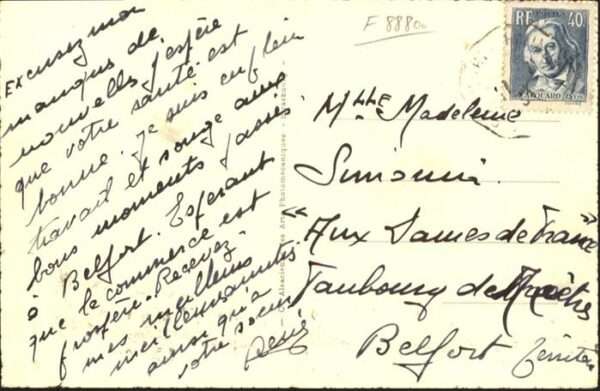 Excusez mon
manque de
nouvelles, j'espère
que votre santé est
bonne. Je suis en plein
travail et songe aux
bons moments passés
à Belfort. Espérant
que le commerce est
prospère. Recevez
mes meilleurs
ainsi qu'à
votre soeur
F 8880
RF
40c
JACQUARD
Mlle Madeleine
Simonin
"Aux Dames de France"
Faubourg de
Belfort